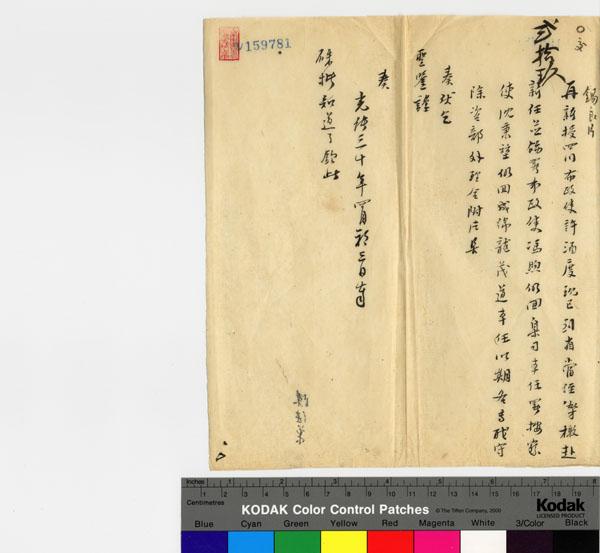 交
錫良片
貳拾玖
再新授四川布政使許涵度現已到省當經檄赴
新任並飭署布政使馮煦仍回臬司本任署按察
使沈秉堃仍回成綿龍茂道本任以期各專職守
除咨部外理合附片具
奏伏乞
聖鑒謹
奏
光緒三十年四月初三日奉
硃批知道了欽此
159781
Inches 1 2 3 4 5 6 7 8
Centimetres 1 2 3 4 5 6 7 8 9 10 11 12 13 14 15 16 17 18 19
KODAK Color Control Patches
© The Tiffen Company, 2000
Kodak
LICENSED PRODUCT
Blue Cyan Green Yellow Red Magenta White 3/Color Black